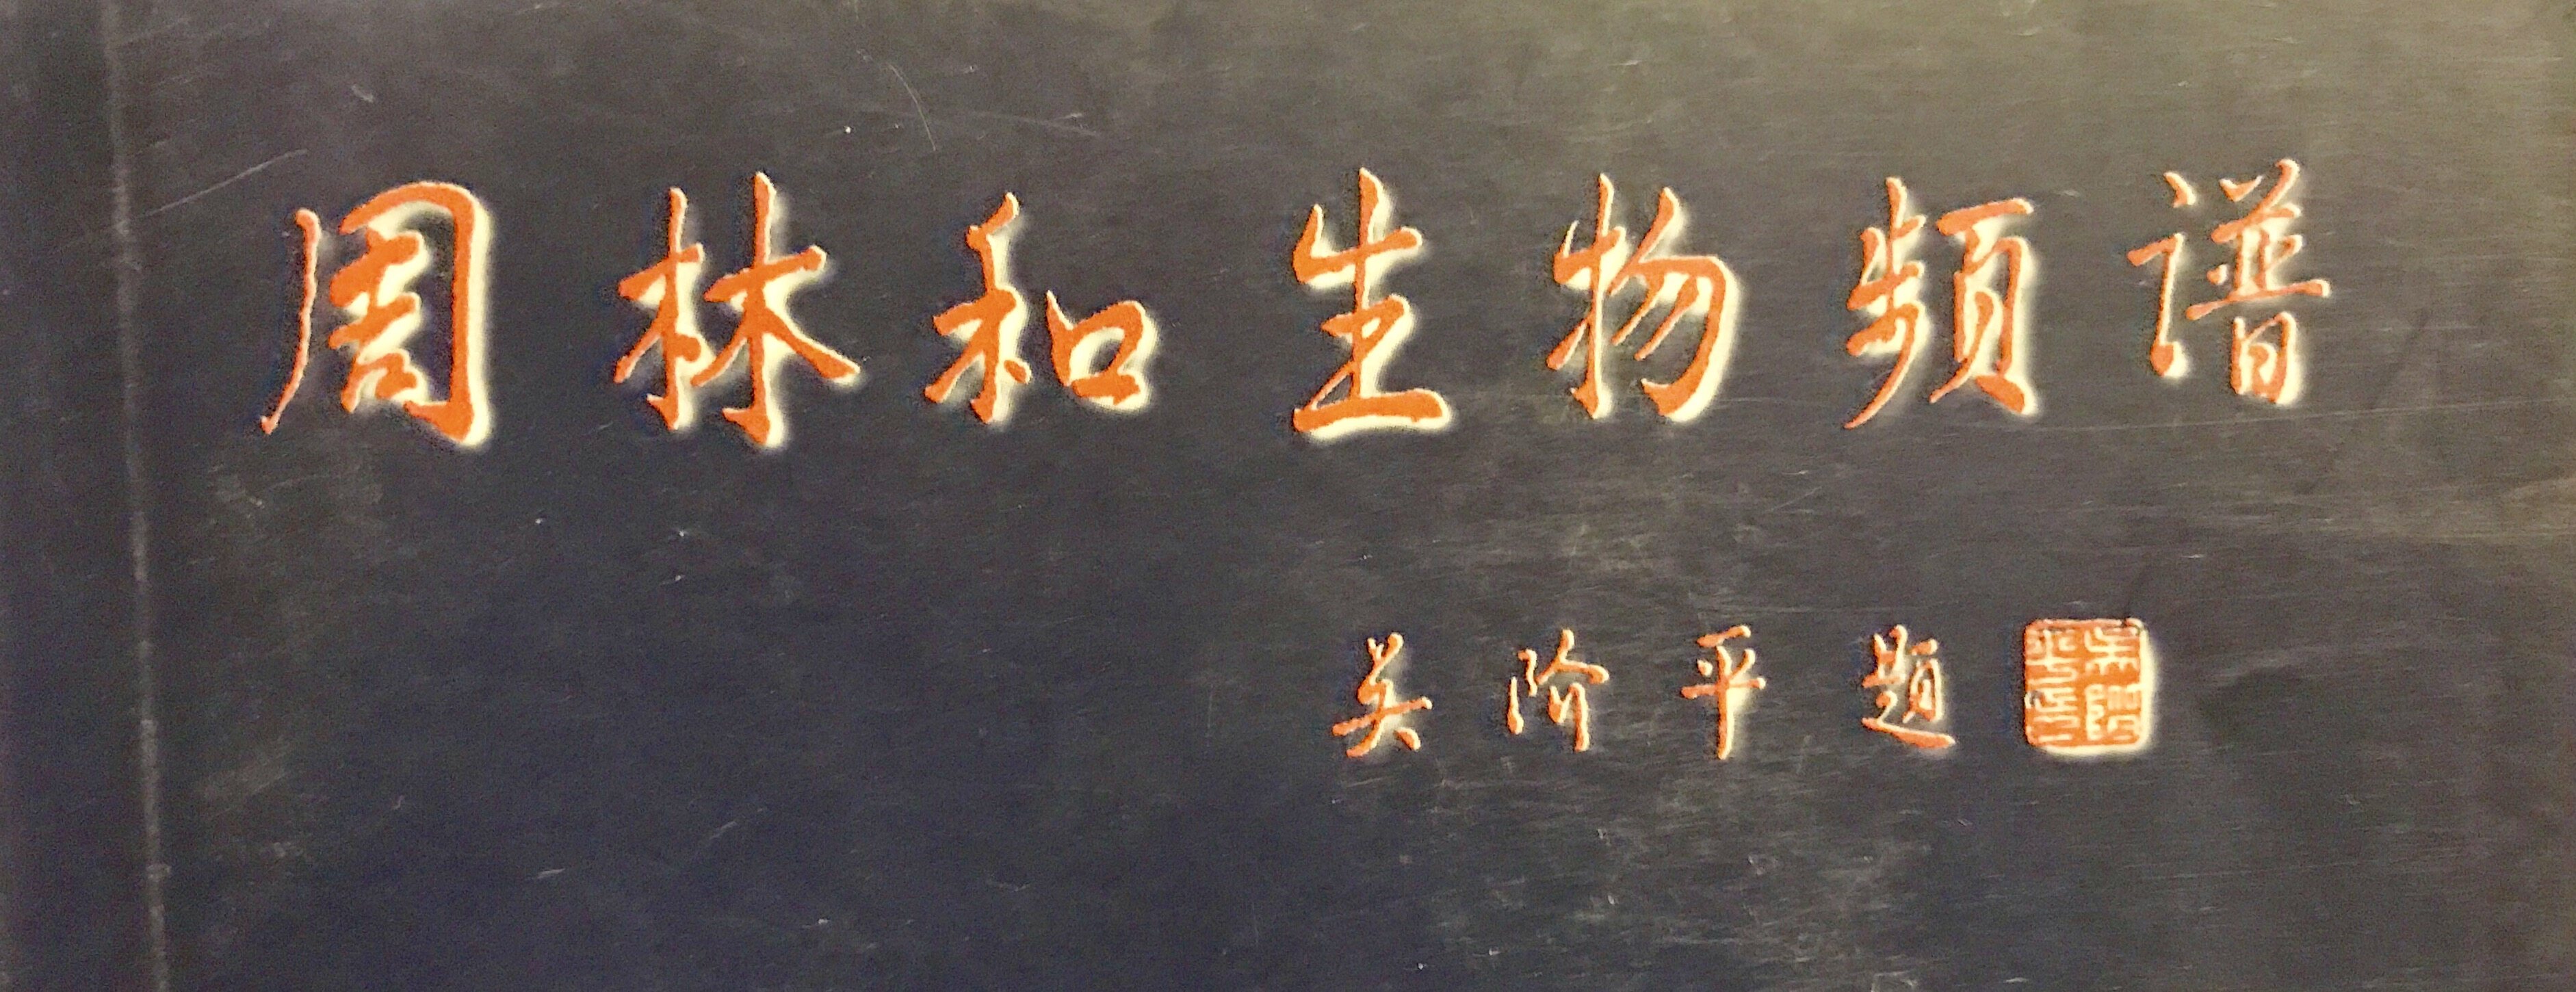 周林和生物频谱
吴阶平题